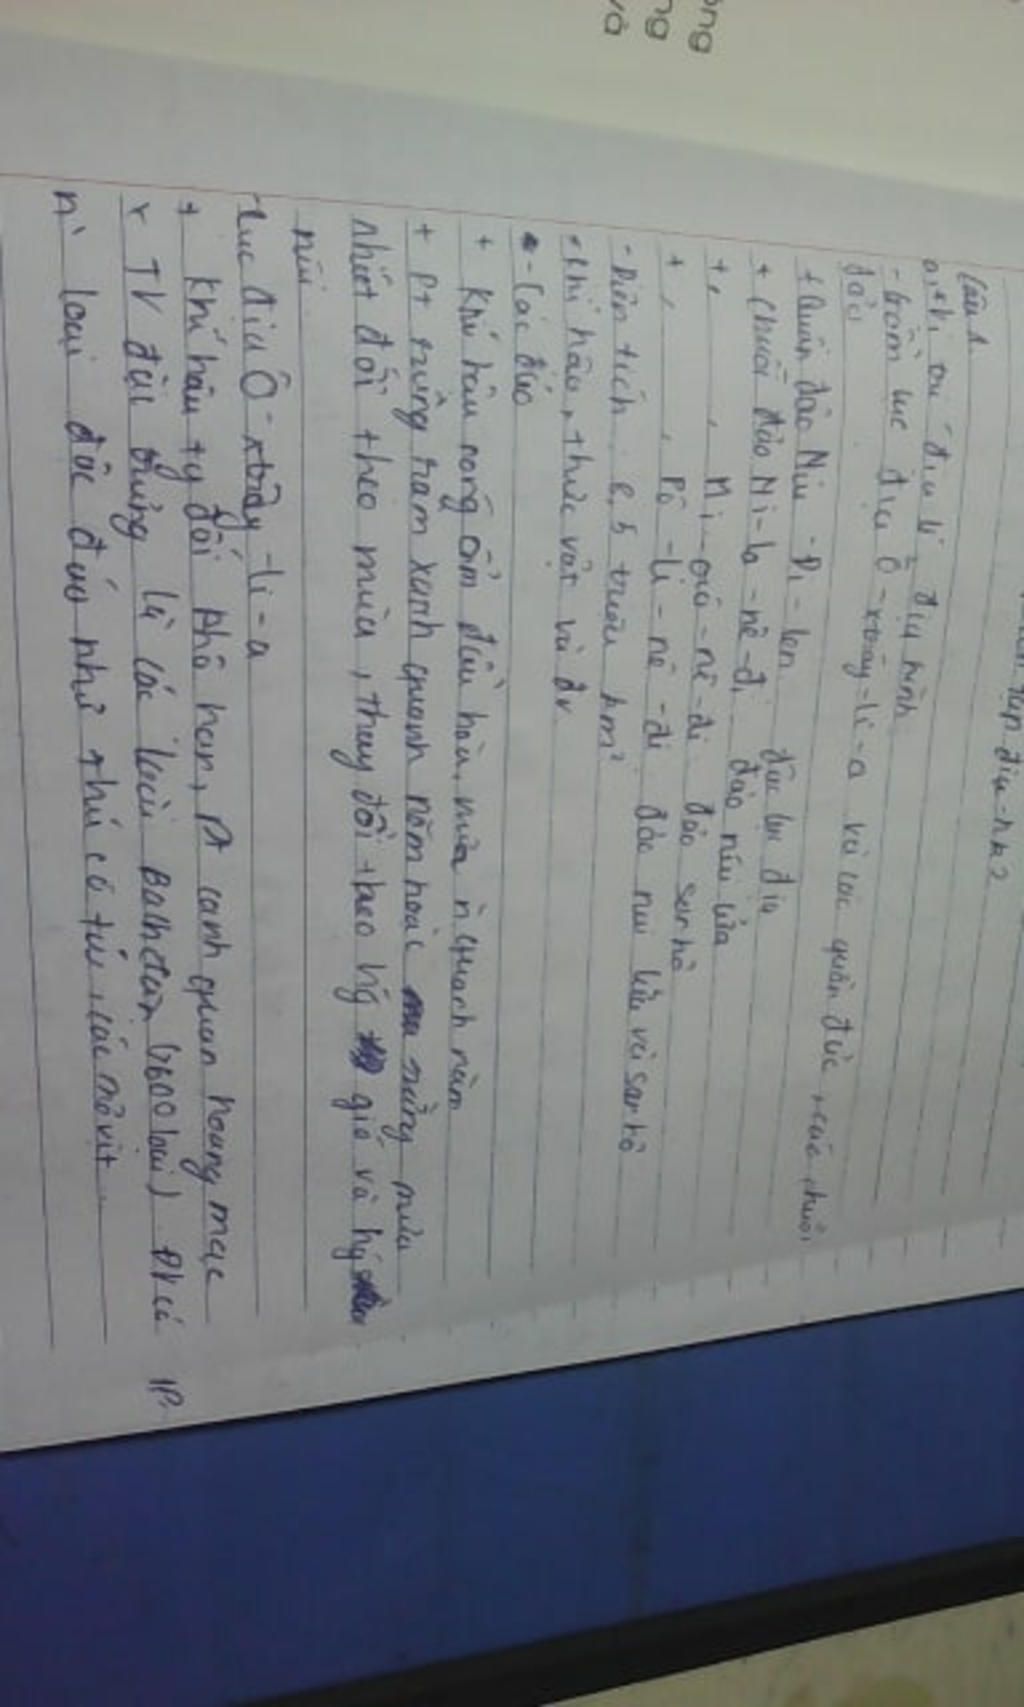 ong
ng
và
địa - hk2
Câu 1.
a, vị trí địa lí, địa hình
- Gồm lục địa Ô-xtrây-li-a và các quần đảo, các chuỗi
đảo
+ Quần đảo Niu-Di-len đảo lục địa
+ Chuỗi đảo Mi-la-nê-di đảo núi lửa
+, , Mi-crô-nê-di đảo san hô
+, , Pô-li-nê-di đảo núi lửa và san hô
- Diện tích 8,5 triệu km²
- Khí hậu, thực vật và đv
- Các đảo
+ Khí hậu nóng ẩm điều hòa, mưa n quanh năm
+ PT rừng rậm xanh quanh năm hoặc rừng mưa
nhiệt đới theo mùa, thay đổi theo hg gió và hg
núi
Lục địa Ô-xtrây-li-a
+ Khí hậu tg đối khô hạn, PT cảnh quan hoang mạc
+ TV đặc trưng là các loài Bạch đàn (600 loài) ĐV có
n loài độc đáo như thú có túi, cáo mỏ vịt